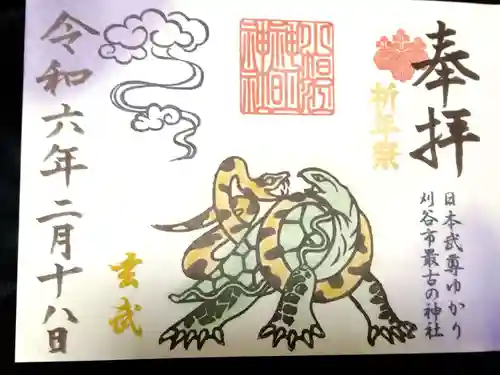 奉拝
日本武尊ゆかり
刈谷市最古の神社
祈年祭
玄武
令和六年二月十八日